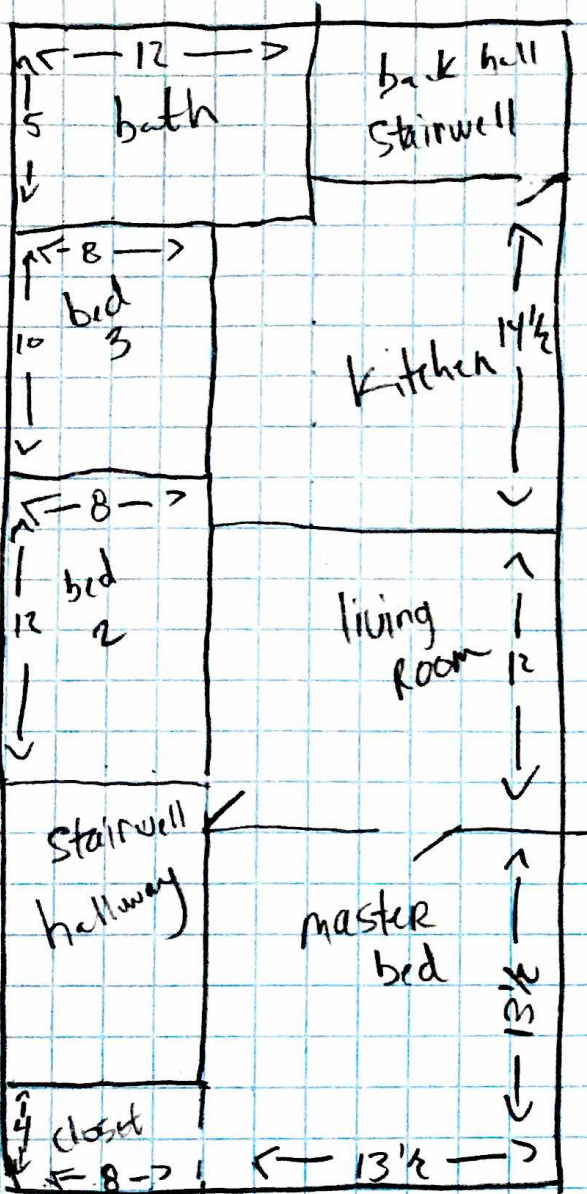 12
5
bath
back hall
stairwell
8
bed
3
10
14 1/2
kitchen
8
bed
2
12
living
Room
12
stairwell
hallway
master
bed
13 1/2
4
closet
8
13 1/2